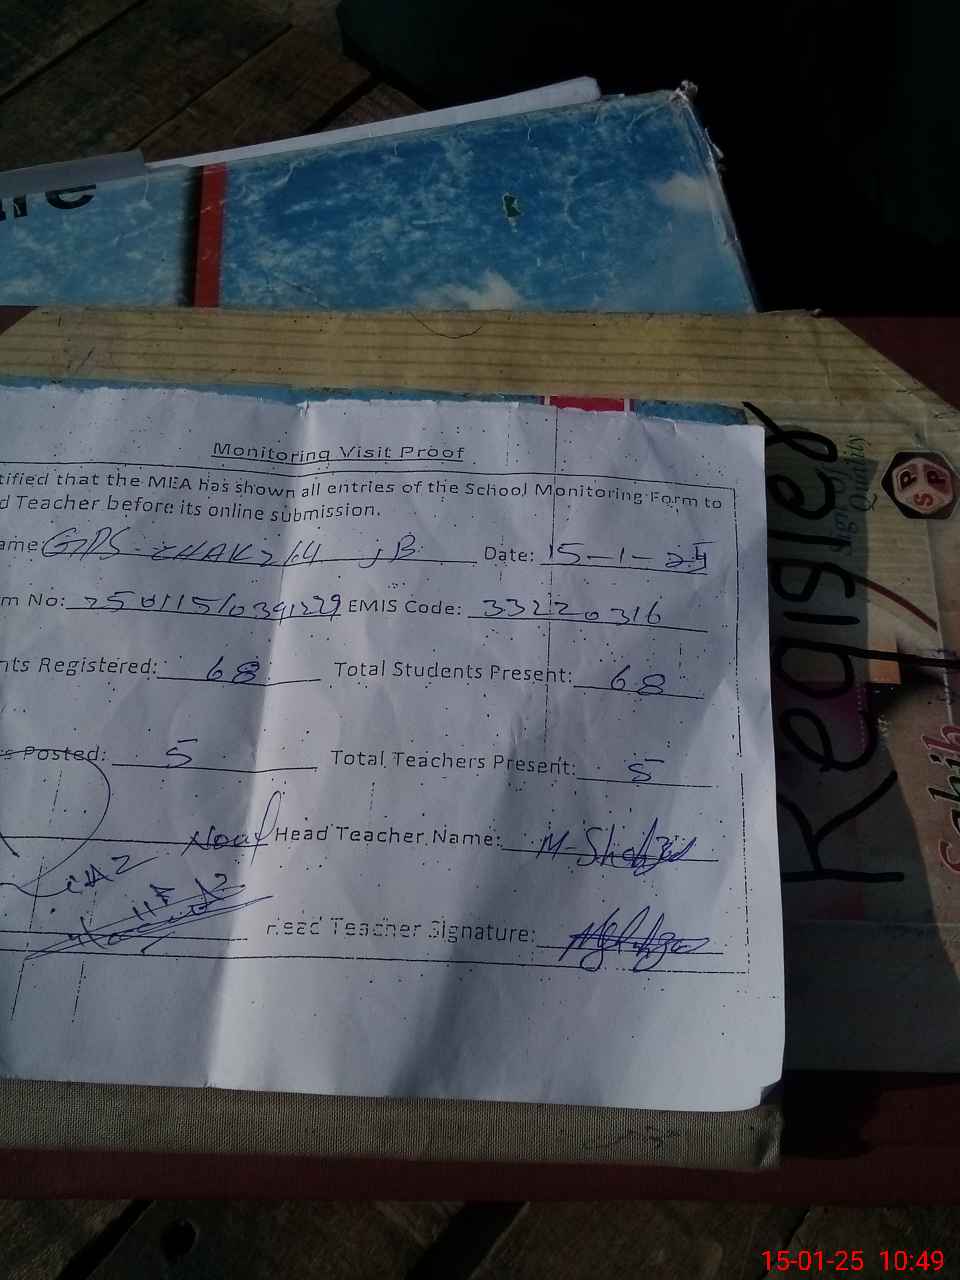 are
Monitoring Visit Proof
tified that the MEA has shown all entries of the School Monitoring Form to
d Teacher before its online submission.
ame GPS-CHAK 214 JB Date: 15-1-25
m No: EMIS Code: 33220316
nts Registered: 68 Total Students Present: 68
s Posted: 5 Total Teachers Present: 5
Head Teacher Name: M-Shafzad
Head Teacher Signature:
Register
Sign of
Quality
SPP
Sahib
15-01-25 10:49